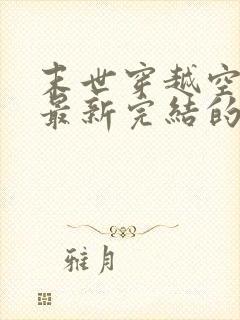 末世穿越空
最新完结的
雅月